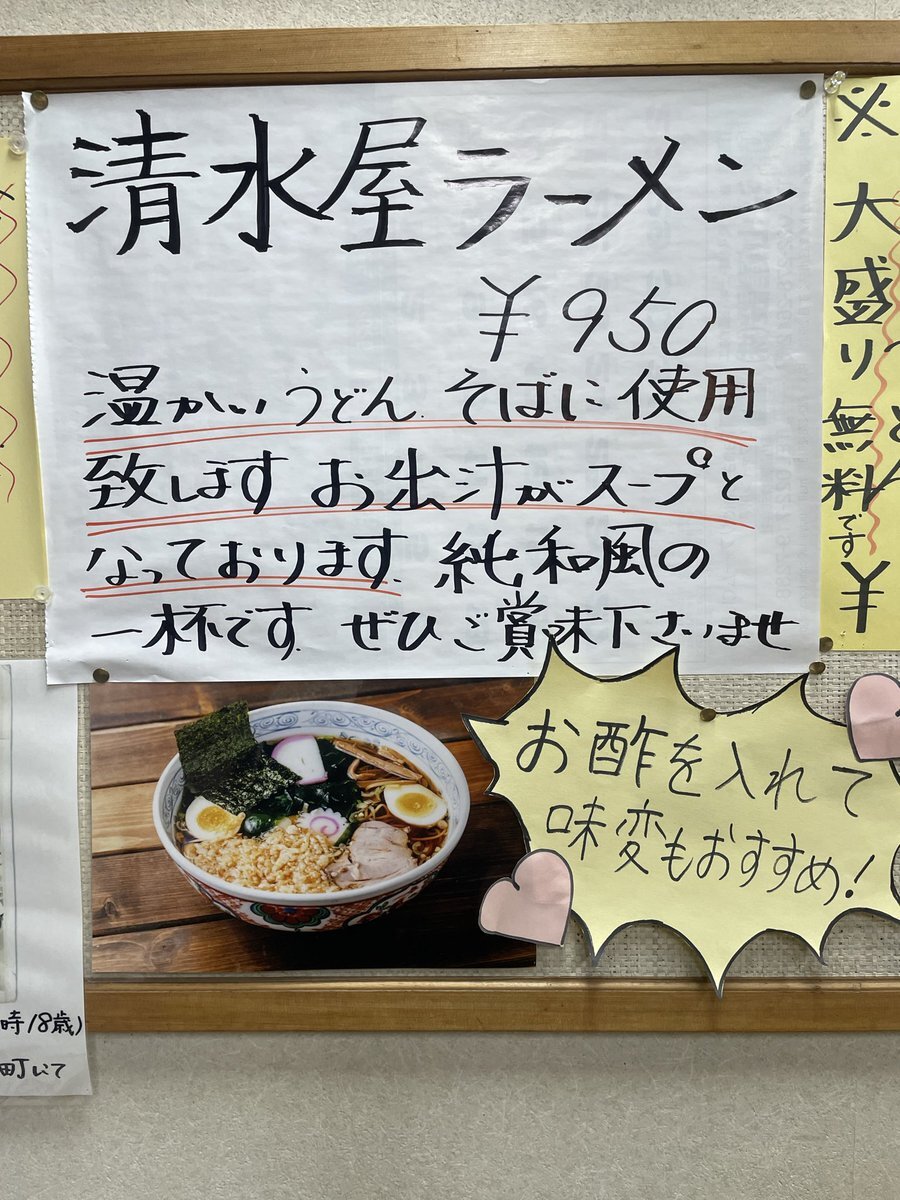 清水屋ラーメン
¥950
温かいうどん、そばに使用
致します お出汁がスープと
なっております。純和風の
一杯です。ぜひご賞味下さいませ
お酢を入れて
味変もおすすめ!
※大盛り無料です
¥
時18歳)
町にて